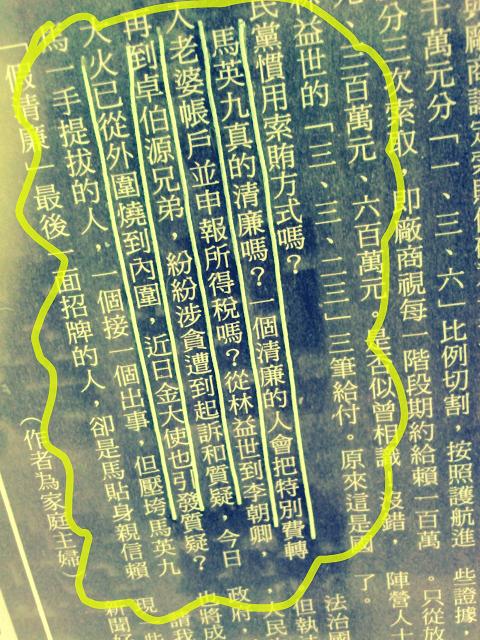 與廠商議定索賄
十萬元分「一、三、六」比例切割，按照護航進
分三次索取，即廠商視每一階段期約給賴一百萬
元、三百萬元、六百萬元。是否似曾相識，沒錯，
林益世的「三、三、二三」三筆給付。原來這是國
民黨慣用索賄方式嗎？
馬英九真的清廉嗎？一個清廉的人會把特別費轉
人老婆帳戶並申報所得稅嗎？從林益世到李朝卿，
再到卓伯源兄弟，紛紛涉貪遭到起訴和質疑，今日
大火已從外圍燒到內圍，近日金大使也引發質疑？
馬一手提拔的人，一個接一個出事，但壓垮馬英九
「假清廉」最後一面招牌的人，卻是馬貼身親信賴
（作者為家庭主婦）
些證據，
。只從
陣營人
了。
法治
但執
，人民
政府，
也將成
請我
現
新聞好